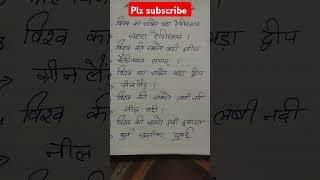 Plz subscribe
विश्व का सबसे बड़ा रेगिस्तान
सहारा रेगिस्तान।
विश्व की सबसे बड़ी झील
कैस्पियन सागर।
विश्व का सबसे बड़ा द्वीप
ग्रीनलैंड।
विश्व की सबसे लम्बी नदी
नील नदी।
विश्व की सबसे ऊंची इमारत
बुर्ज खलीफा दुबई